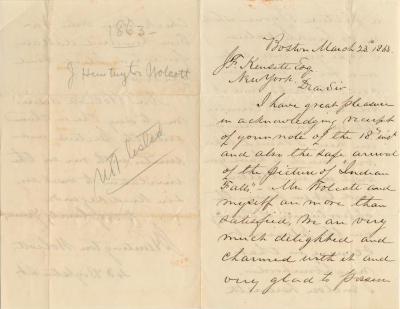 1863-
J Huntington Wolcott
Not listed
Boston March 23d 1863
J F. Kensett Esq
New York
Dear Sir
I have great pleasure
in acknowledging receipt
of your note of the 18th inst
and also the safe arrival
of the picture of "Indian
Falls". Mrs Wolcott and
myself are more than
"satisfied", we are very
much delighted and
charmed with it and
very glad to possess